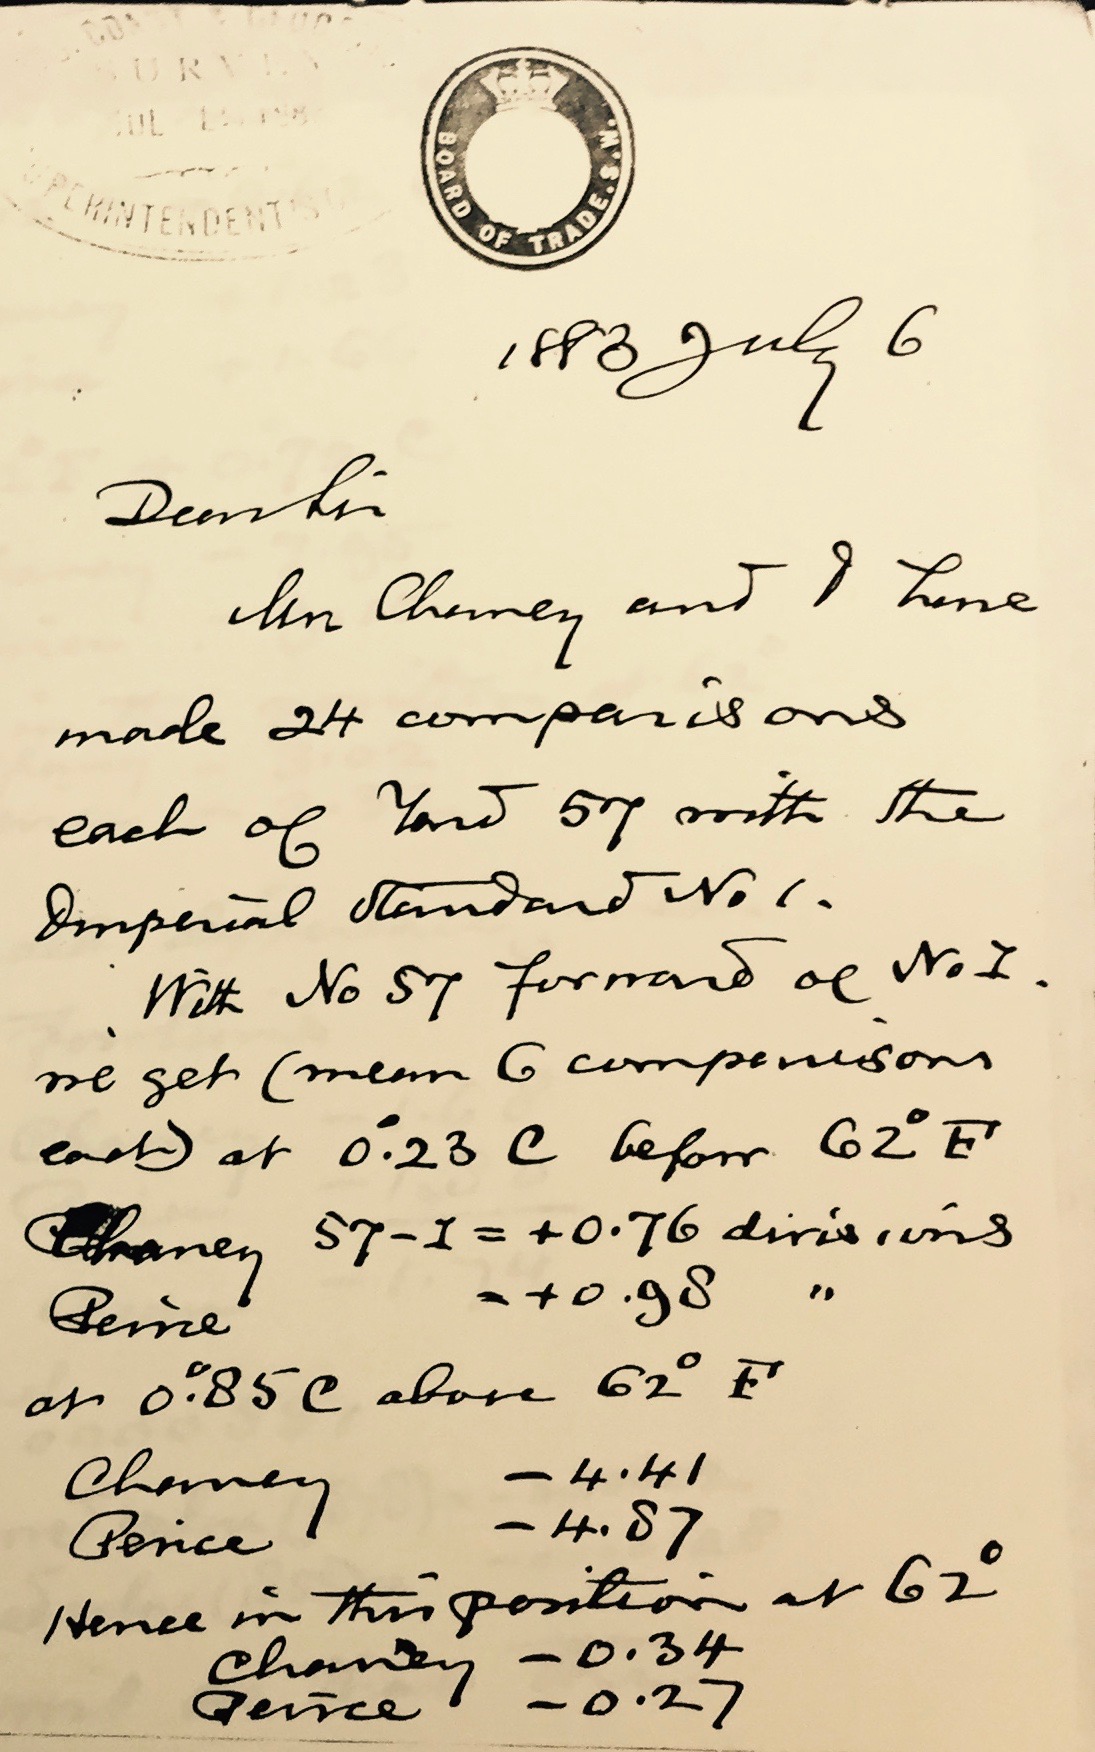 SUPERINTENDENT'S
BOARD OF TRADE. S. W.
1883 July 6
Dear Sir
Mr Chaney and I have
made 24 comparisons
each of Yard 57 with the
Imperial Standard No 1.
With No 57 forward of No I.
we get (mean 6 comparisons
each) at 0°.23 C below 62° F
Chaney 57-I = +0.76 divisions
Peirce = +0.98 "
at 0°.85 C above 62° F
Chaney - 4.41
Peirce - 4.87
Hence in this position at 62°
Chaney - 0.34
Peirce - 0.27